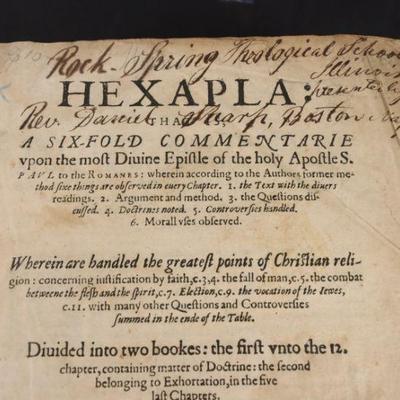 Rock-Spring Theological School
Illinois
HEXAPLA:
presented by
THA
Rev. Daniel Sharp, Boston
A SIX-FOLD COMMENTARIE
vpon the most Diuine Epistle of the holy Apostle S.
PAVL to the ROMANES: wherein according to the Authors former me-
thod sixe things are obserued in euery Chapter. 1. the Text with the diuers
readings. 2. Argument and method. 3. the Questions dis-
cussed. 4. Doctrines noted. 5. Controversies handled.
6. Morall vses observed.
Wherein are handled the greatest points of Christian reli-
gion: concerning iustification by faith, c.3,4. the fall of man, c.5. the combat
betweene the flesh and the spirit, c.7. Election, c.9. the vocation of the Iewes,
c.11. with many other Questions and Controversies
summed in the ende of the Table.
Diuided into two bookes: the first vnto the 12.
chapter, containing matter of Doctrine: the second
belonging to Exhortation, in the fiue
last Chapters.